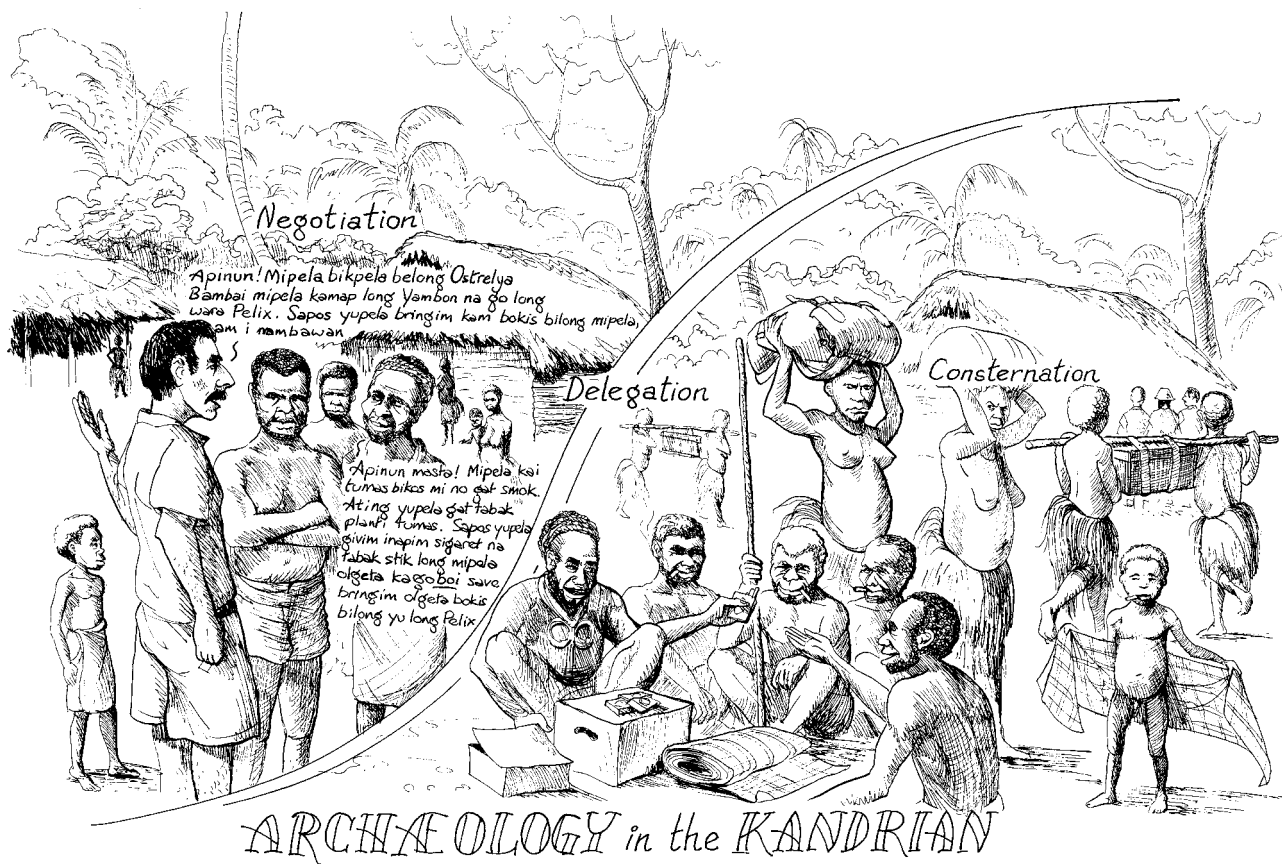 Negotiation
Apinun! Mipela bikpela belong Ostrelya
Bambai mipela kamap long Yambon na go long
wara Pelix. Sapos yupela bringim kam bokis bilong mipela,
am i nambawan
Apinun masta! Mipela kai
tumas bikos mi no gat smok.
Ating yupela gat tabak
planti tumas. Sapos yupela
givim inapim sigaret na
tabak stik long mipela
olgeta kago boi save
bringim olgeta bokis
bilong yu long Pelix
Delegation
Consternation
ARCHÆOLOGY in the KANDRIAN